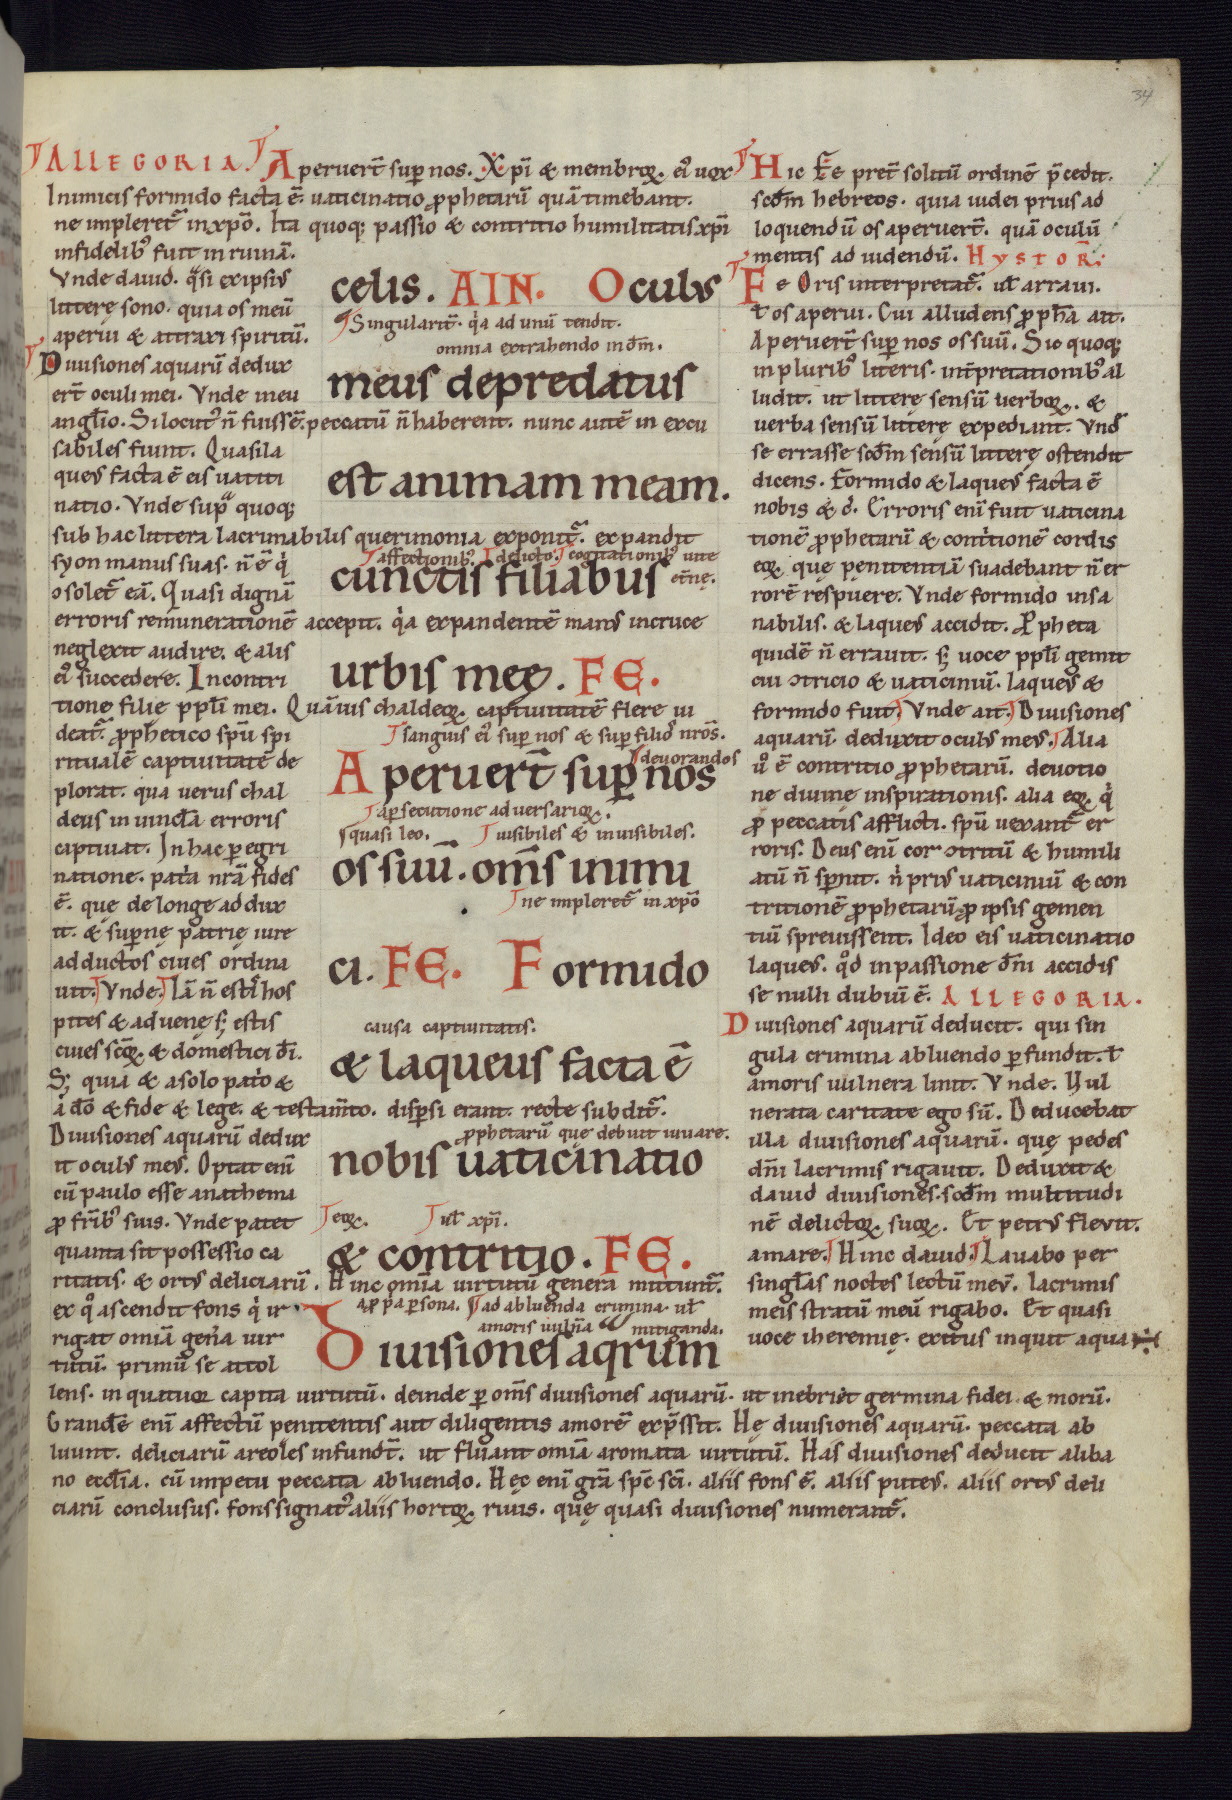 34
ALLEGORIA. Aperuer̄t sup nos. Xpī & membroꝝ. eꝰ uox
Inimicis formido facta ē. uaticinatio ꝓphetarū quā timebant.
ne impleret̄ in xpō. Ita quoq; passio & contritio humilitatis xpī
infidelibꝰ fuit in ruinā.
Vnde dauid. q̄si ex ipsiꝰ
litterę sono. quia os meū
aperui & attraxi spiritū.
Diuisiones aquarū dedux
er̄t oculi mei. Vnde in eu
angl̄io. Si locutꝰ n̄ fuissē. peccatū n̄ haberent. nunc autē in excu
sabiles fiunt. Quasi la
queꝰ facta ē eis uatici
natio. Vnde sup̄ quoq;
sub hac littera lacrimabilis querimonia exponit̄. expandit
syon manus suas. n̄ ē q̇
ꝯsolet̄ eā. Quasi dignā
erroris remunerationē accepit. q̇a expandentē manꝰ in cruce
neglexit audire. & aliꝰ
eꝰ succedere. In contri
tione filię ppl̄i mei. Quāuis chaldeoꝝ captiuitatē flere ui
deat̄. ꝓphetico spū spi
ritualē captiuitatē de
plorat. qua uerus chal
deus in uincl̄a erroris
captiuat. In hac peregri
natione. patr̄a nr̄a fides
ē. quę de longe addux
it. & supnę patrię iure
adductos ciues ordina
uit. Vnde. Iā n̄ estis hos
pites & aduenę s; estis
ciues scōꝝ & domestici dī.
S; quia & a solo patr̄o &
a dō & fide & lege. & testam̄to. dispsi erant. recte subdit̄.
Diuisiones aquarū dedux
it oculꝰ meꝰ. Optat eni
cū paulo esse anathema
ꝓ fr̄ibꝰ suis. Vnde patet
quanta sit possessio ca
ritatis. & ortꝰ deliciarū. Hinc om̄ia uirtutū genera mittunt̄.
ex qͦ ascendit fons q̇ ir
rigat omīa gen̄a uir
tutū. primū se attol
celis. AIN. Oculus
Singularit̄. q̇a ad unū tendit.
omnia extrahendo in dm̄.
meus depredatus
est animam meam.
affectionibꝰ. delicto. cogitationibꝰ uitę
et̄nę.
cunctis filiabus
urbis meę. FE.
sanguis eꝰ sup nos & sup filios nrōs.
deuorandos
Aperuer̄t sup nos
a psecutione aduersarioꝝ.
quasi leo. uisibiles & inuisibiles.
os suū. om̄s inimi
ne impleret̄ in xpō
ci. FE. Formido
causa captiuitatis.
& laqueus facta ē
ꝓphetarū quę debuit iuuare.
nobis uaticinatio
eoꝝ. ul̄ xpī.
& contritio. FE.
a ꝓpa psona. ad abluenda crimina. ul̄
amoris uuln̄a mitiganda.
Diuisiones aqrum
Hic Fe pret̄ solitū ordinē p̄cedit.
scd̄m hebreos. quia iudei prius ad
loquendū os aperuer̄t. quā oculū
mentis ad uidendū. HystoR̄.
Fe Oris interpretat̄. ul̄ arraui.
ł os aperui. Cui alludens ꝓph̄a ait.
Aperuer̄t sup nos os suū. Sic quoq;
in pluribꝰ literis. int̄pretationibꝰ al
ludit. ut litterę sensū uerboꝝ. &
uerba sensū litterę expediant. Vnd̄
se errasse scd̄m sensū litterę ostendit
dicens. Formido & laqueꝰ facta ē
nobis & c̄. Erroris eni fuit uaticina
tionē ꝓphetarū & contritionē cordis
eoꝝ. quę penitentiā suadebant n̄ er
rorē respuere. Vnde formido insa
nabilis. & laqueꝰ accidit. Ppheta
quidē n̄ errauit. s; uoce ppl̄i gemit
cui ꝯtricio & uaticiniū. laqueꝰ &
formido fuit. Vnde ait. Diuisiones
aquarū deduxit oculꝰ meꝰ. Alia
u̇ ē contritio ꝓphetarū. deuotio
ne diuinę inspirationis. alia eoꝝ q̇
ꝓ peccatis afflicti. spū uexant̄ er
roris. Deus eni cor ꝯtritū & humili
atū n̄ spnit. n̄ priꝰ uaticiniū & con
tritionē ꝓphetarū ꝓ ipsis gemen
tiū spreuissent. Ideo eis uaticinatio
laqueꝰ. qd̄ in passione dn̄i accidis
se nulli dubiū ē. ALLEGORIA.
Diuisiones aquarū deducit. qui sin
gula crimina abluendo pfundit. ł
amoris uulnera linit. Vnde. Vul
nerata caritate ego sū. Deducebat
illa diuisiones aquarū. quę pedes
dn̄i lacrimis rigauit. Deduxit &
dauid diuisiones. scd̄m multitudi
nē delictoꝝ suoꝝ. Et petrꝰ fleuit.
amare. Hinc dauid. Lauabo per
singl̄as noctes lectū meū. lacrimis
meis stratū meū rigabo. Et quasi
uoce iheremię. exitus inquit aqua
lens. in quatuor capita uirtutū. deinde p om̄s diuisiones aquarū. ut inebriet germina fidei. & morū.
Grandē eni affectū penitentis aut diligentis amorē exp̄ssit. Hę diuisiones aquarū. peccata ab
luunt. deliciarū areoles infundt̄. ut fluant omīa aromata uirtutū. Has diuisiones deducit aliba
no eccl̄ia. cū impetu peccata abluendo. Hęc eni gr̄a spc̄ sci. aliis fons ē. aliis puteꝰ. aliis ortꝰ deli
ciarū conclusus. fons signatꝰ aliis hortoꝝ riuus. quę quasi diuisiones numerant̄.